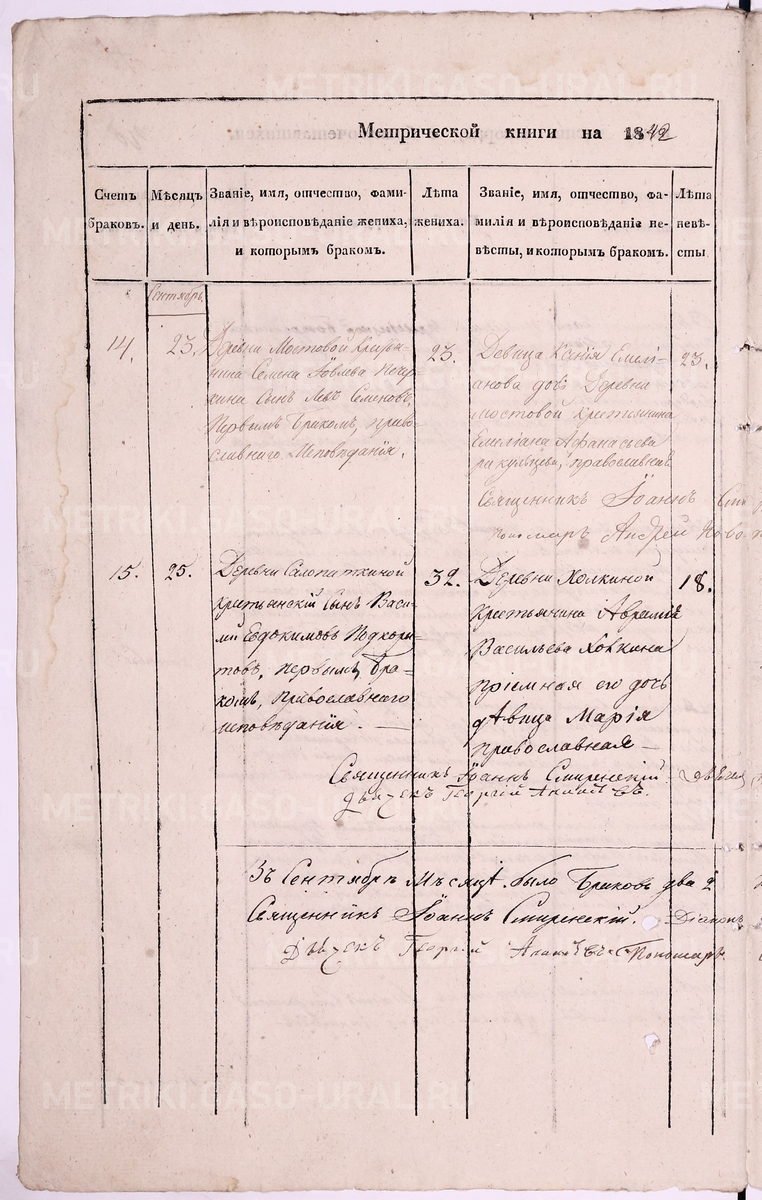 Метрической книги на 1842
Счетъ браковъ.
Мѣсяцъ и день.
Званіе, имя, отчество, фами-
лія и вѣроисповѣданіе жениха,
и которымъ бракомъ.
Лѣта жениха.
Званіе, имя, отчество, фа-
милія и вѣроисповѣданіе не-
вѣсты, и которымъ бракомъ.
Лѣта невѣ-
сты
Сентябрь
14.
23.
Деревни Мостовой Крестья-
нина Семена Іовлева
сынъ Левъ Семеновъ,
Первымъ Бракомъ, право-
славнаго Исповѣданія.
23.
Девица Ксенія Емелі-
анова дочь Деревни
мостовой крестьянина
Емиліана Афанасьева
православная
23.
Священникъ Іоаннъ
пономарь Андрей
15.
25.
Деревни Салопаткиной
крестьянскій сынъ Васи-
лій Евдокимовъ Подкоры-
товъ, первымъ Бра-
комъ, православнаго
исповѣданія. —
32.
Деревни Холкиной
крестьянина Аврамія
Васильева Ховкина
пріемная его дочь
дѣвица Марія
православная —
18.
Священникъ Іоаннъ Смиренскій.
Дьячекъ Георгій
Въ Сентябрѣ Мѣсяцѣ было Браковъ два 2
Священникъ Іоаннъ Смиренскій. Діаконъ
Дьячекъ Георгій Пономарь
METRIKI.GASO-URAL.RU